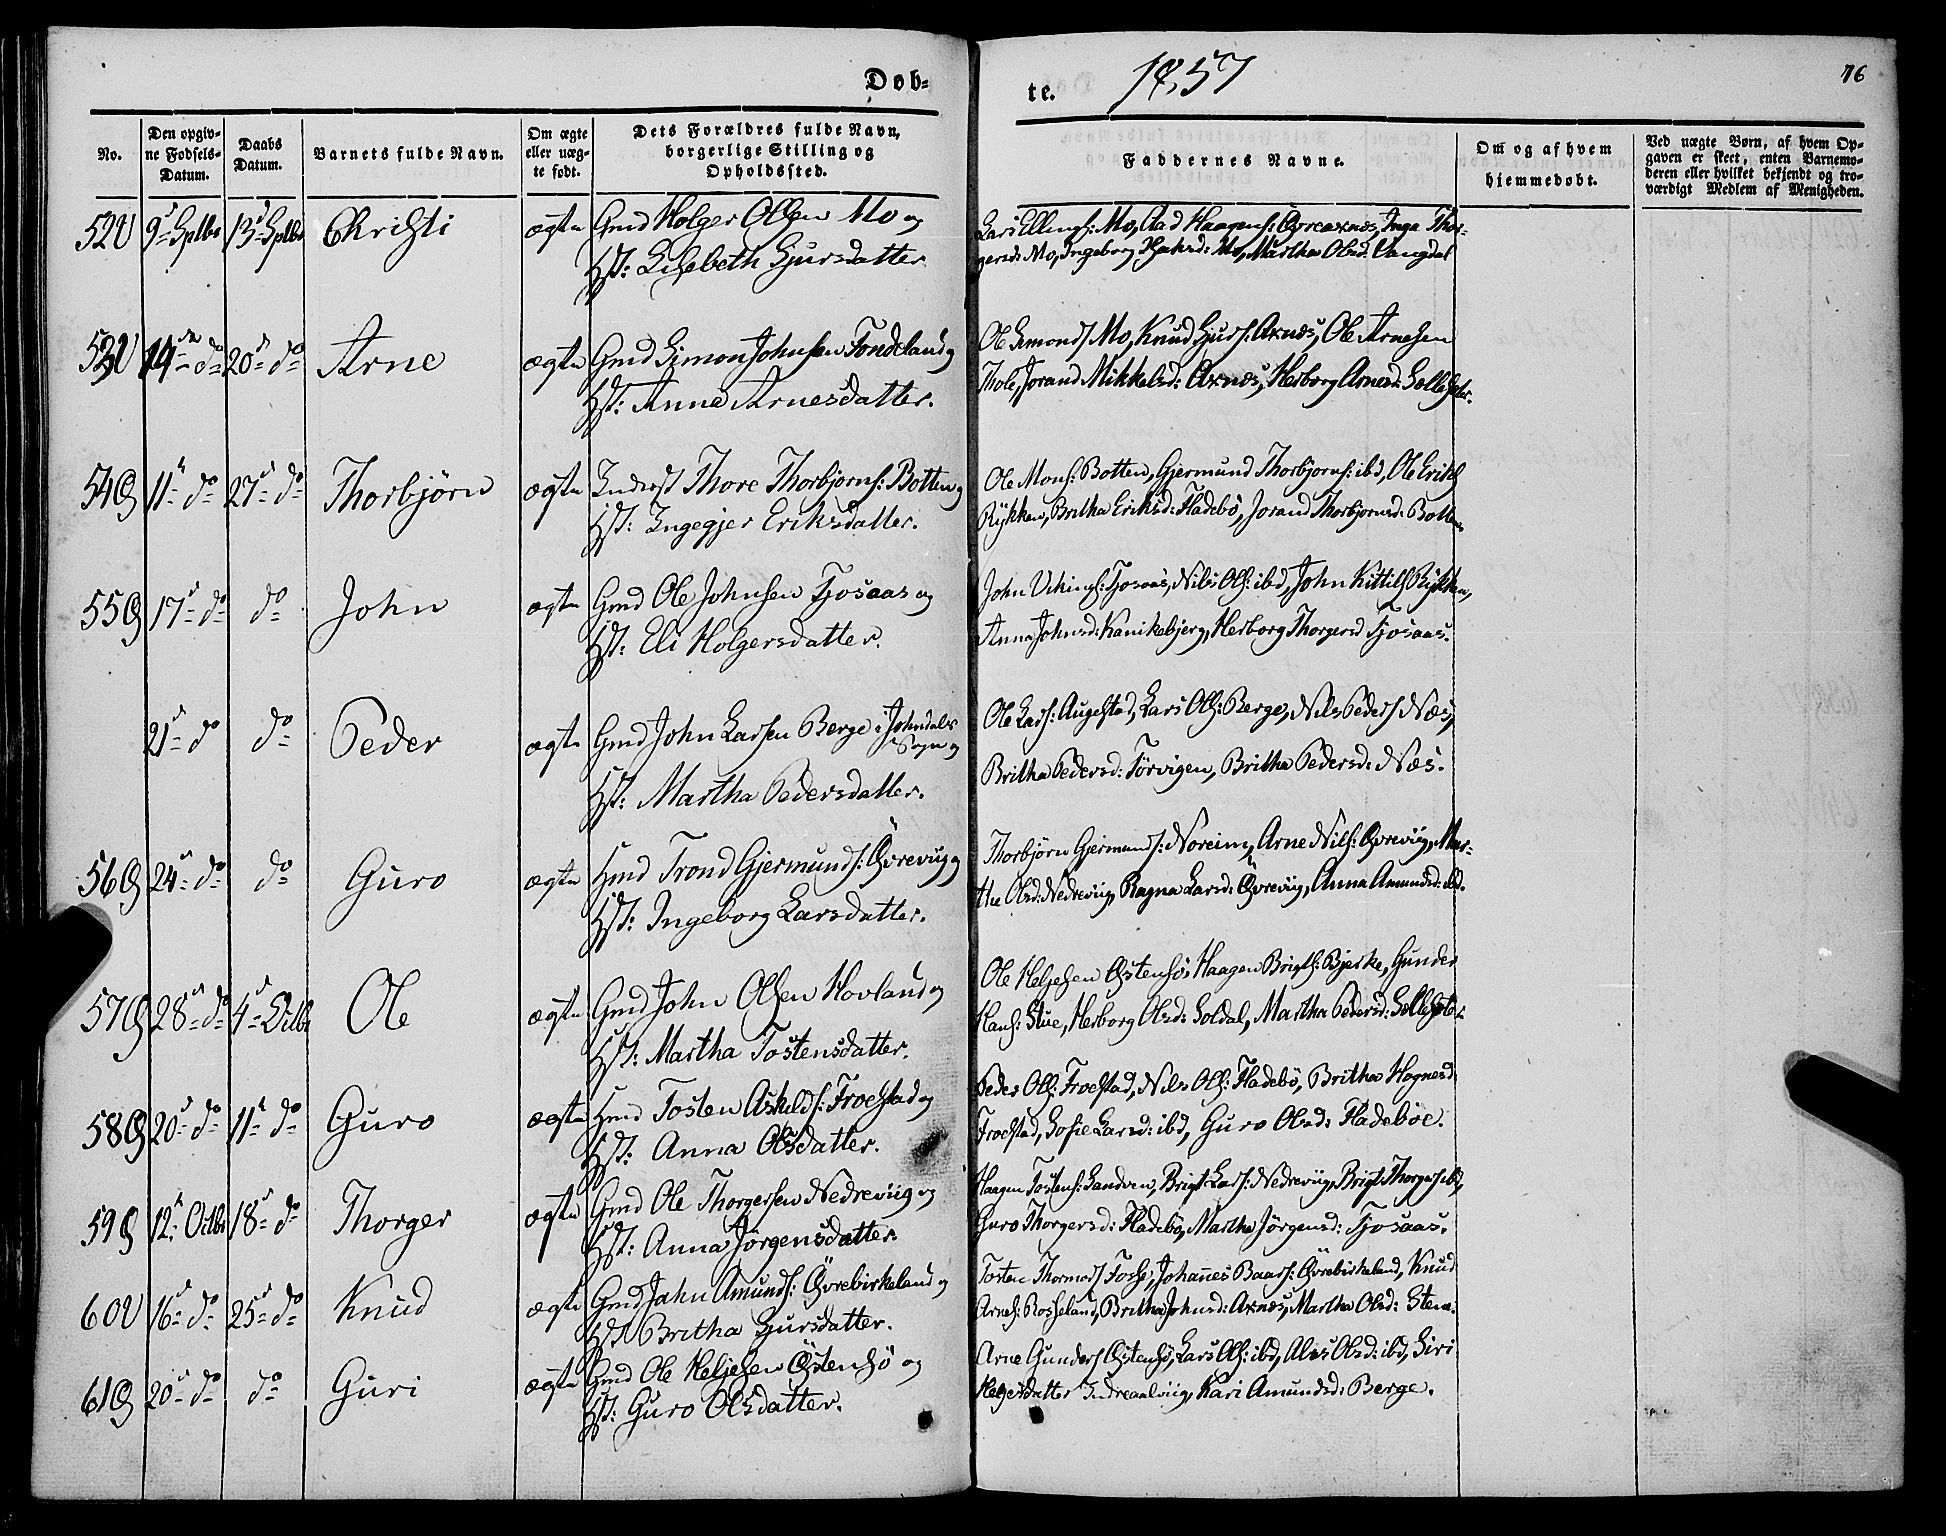 Døb-
te.
1857
76
No.
Den opgiv-
ne Fødsels-
Datum.
Daabs
Datum.
Barnets fulde Navn.
Om ægte
eller uæg-
te født.
Dets Forældres fulde Navn,
borgerlige Stilling og
Opholdssted.
Faddernes Navne.
Om og af hvem
hjemmedøbt.
Ved uægte Børn, af hvem Op-
gaven er skeet, enten Barnemo-
deren eller hvilket bekjendt og tro-
værdigt Medlem af Menigheden.
52V 9d Sptbr 13d Sptbr Christi ægte Gmd Holger Olsen Mo og
Hst: Lisebeth Gjursdatter
Lars Ellings: Mo, Aad Haagens: Øvreaxnæs, Inga Thor-
gersd: Mo, Ingeborg Mo, Martha Olsd. Vangdal
53V 14de do 20d do Arne ægte Gmd Simon Johnsen Fondeland og
Hst: Anna Arnesdatter.
Ole Simons Mo, Knud Gjurs. Axnæs, Ole Arnesen
Thole, Jorand Mikkelsd: Axnæs, Herborg Arnesd: Selleseter.
54Ø 11t do 27d do Thorbjørn ægte Inderst Thore Thorbjørns: Botten og
Hst: Ingegjer Eriksdatter.
Ole Mons: Botten, Gjermund Thorbjørns: ibd, Ole Eriks
Rykken, Britha Eriksd: Fladebö, Jorand Thorbjørnsd: Botten.
55Ø 17d do do John ægte Gmd Ole Johnsen Tjosaas og
Hst: Eli Holgersdatter.
John Vikings: Tjosaas, Nils Ols: ibd, John Kittils Rykken,
Anna Johnsd: Kanikebjerg, Herborg Thorgersd Tjosaas.
21d do do Peder ægte Gmd John Larsen Berge i Johndals
Sogn og
Hst: Martha Pedersdatter.
Ole Lars: Augestad, Lars Ols: Berge, Nils Peders Næs,
Britha Pedersd: Törvigen, Britha Pedersd: Næs.
56Ø 24d do do Guro ægte Hmd Trond Gjermunds: Øvreviig og
Hst: Ingeborg Larsdatter.
Thorbjørn Gjermunds: Noreim, Arne Nils: Øvreviig, Mar-
tha Olsd: Nedreviig, Ragna Larsd: Øvreviig, Anna Amundsd: ibd.
57Ø 28d do 4d Octbr Ole ægte Gmd John Olsen Hovland og
Hst: Martha Tostensdatter.
Ole Heljesen Østensö, Haagen Brigts: Bjerke, Gunder
Hans: Stue, Herborg Olsd: Soldal, Martha Pedersd: Selleseter
58Ø 20d do 11t do Guro ægte Hmd Tosten Askilds: Froestad og
Hst: Anna Olsdatter.
Peder Ols: Froestad, Nils Ols: Fladebö, Britha Hognesd:
Froestad, Sofie Larsd: ibd, Guro Olsd: Fladeböe.
59Ø 12t Octbr 18d do Thorger ægte Gmd Ole Thorgersen Nedreviig og
Hst: Anna Jørgensdatter.
Haagen Tostens: Sandven, Brigt Lars: Nedreviig, Brigt Thorgers ibd,
Guro Thorgersd: Fladebö, Martha Jörgensd: Tjosaas.
60V 16d do 25d do Knud ægte Gmd John Amunds: Øvrebirkeland og
Hst Britha Gjursdatter.
Tosten Thormods Fosse, Johannes Baars: Øvrebirkeland, Knud
Arnes: Rosseland, Britha Johnsd: Axnæs, Martha Olsd: Stene.
61Ø 20d do do Guri ægte Gmd Ole Heljesen Østensö og
Hst: Guro Olsdatter.
Arne Gunders Østensö, Lars Ols: ibd, Ales Olsd: ibd, Siri
Heljesdatter Indreaalviig, Kari Amundsd: Berge.